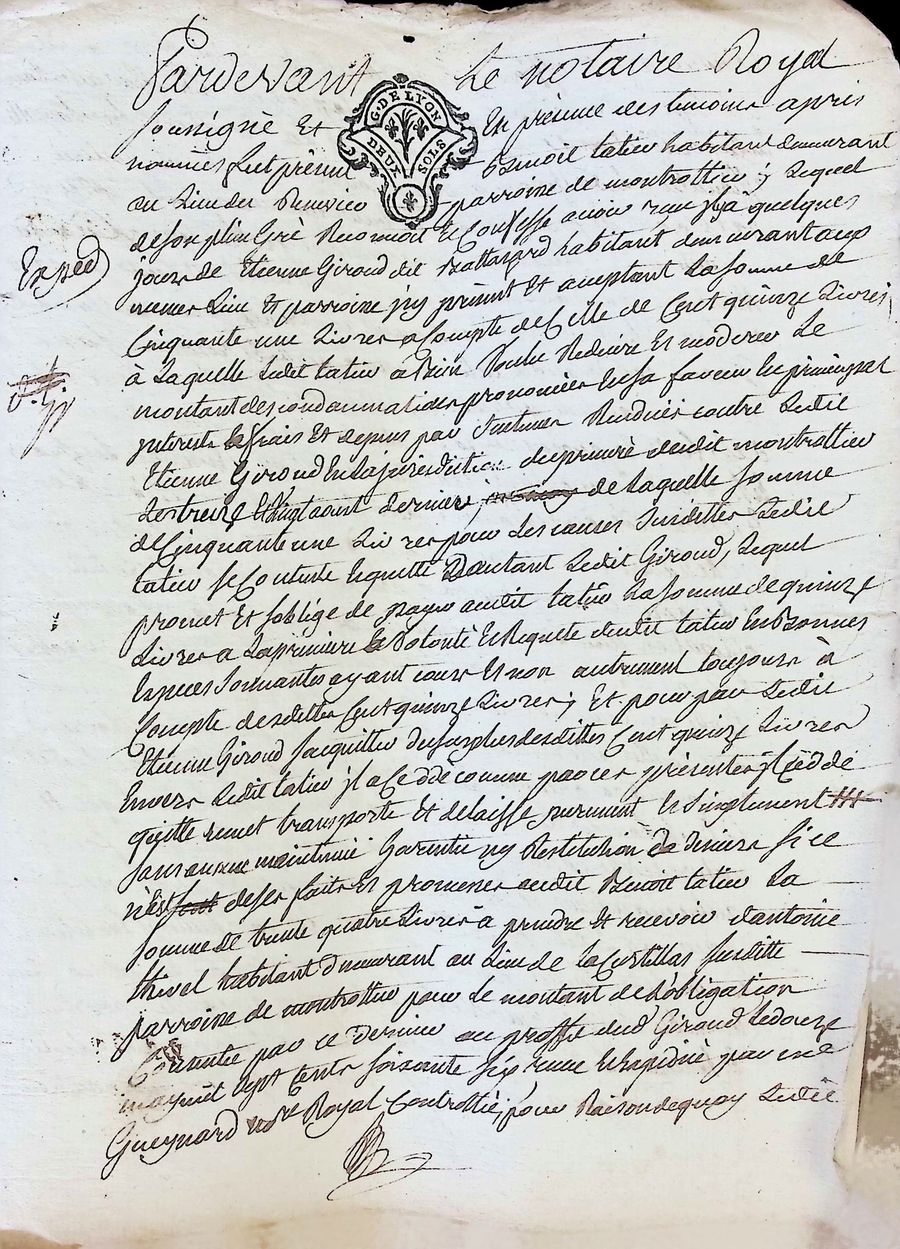 Pardevant Le notaire Royal
G. DE LYON
DEUX SOLS
soussigné Et En présence des temoins apres
nommés fut présent Benoit tatieu habitant demeurant
au Lieu de parroisse de montrottier ; Lequel
de son plein Gré Reconnoit Et Confesse avoir reçu jl y a quelques
Exped
jours de Etienne Giroud dit habitant demeurant aux
memes Lieu Et parroisse jcy présent Et aceptant La somme de
Cinquante une Livres a Compte de Celle de Cent quinze Livres
à Laquelle Ledit tatieu à bien Voulu Reduire Et moderer Le
montant des condamnations prononcées En sa faveur En principal
jnterets Et frais Et depens par Sentences Rendües contre Ledit
Etienne Giroud En La jurisdiction du prieuré dudit montrottier
Les treize Et Vingt aoust dernier, de Laquelle somme
de Cinquante une Livres pour Les causes Susdittes Ledit
tatieu se Contente En quitte D'autant Ledit Giroud, Lequel
promet Et soblige de payer audit tatieu La somme de quinze
Livres a La premiere Volonté Et Requete dudit tatieu En Bonnes
Especes Sonnantes ayant cours Et non autrement toujours à
Compte desdittes Cent quinze Livres ; Et pour par Ledit
Etienne Giroud sacquitter du surplus desdittes Cent quinze Livres
Envers Ledit tatieu jl a Ceddé comme par ces présentes jl Cedde
quitte remet transporte Et delaisse purement Et Simplement
sans aucune maintenüe Garantie ny Restitution de deniers si ce
n'est de ses faits Et promesses audit Benoit tatieu La
somme de trente quatre Livres à prendre Et recevoir d'antoine
thivel habitant demeurant au Lieu de La susditte
parroisse de montrottier pour Le montant de L'obligation
Consentie par ce dernier au proffit dud Giroud Le douze
may mil sept Cents soixante six reçue Et Expediée par me
Gueynard nore Royal Controllée ; pour Raison de quoy Ledit